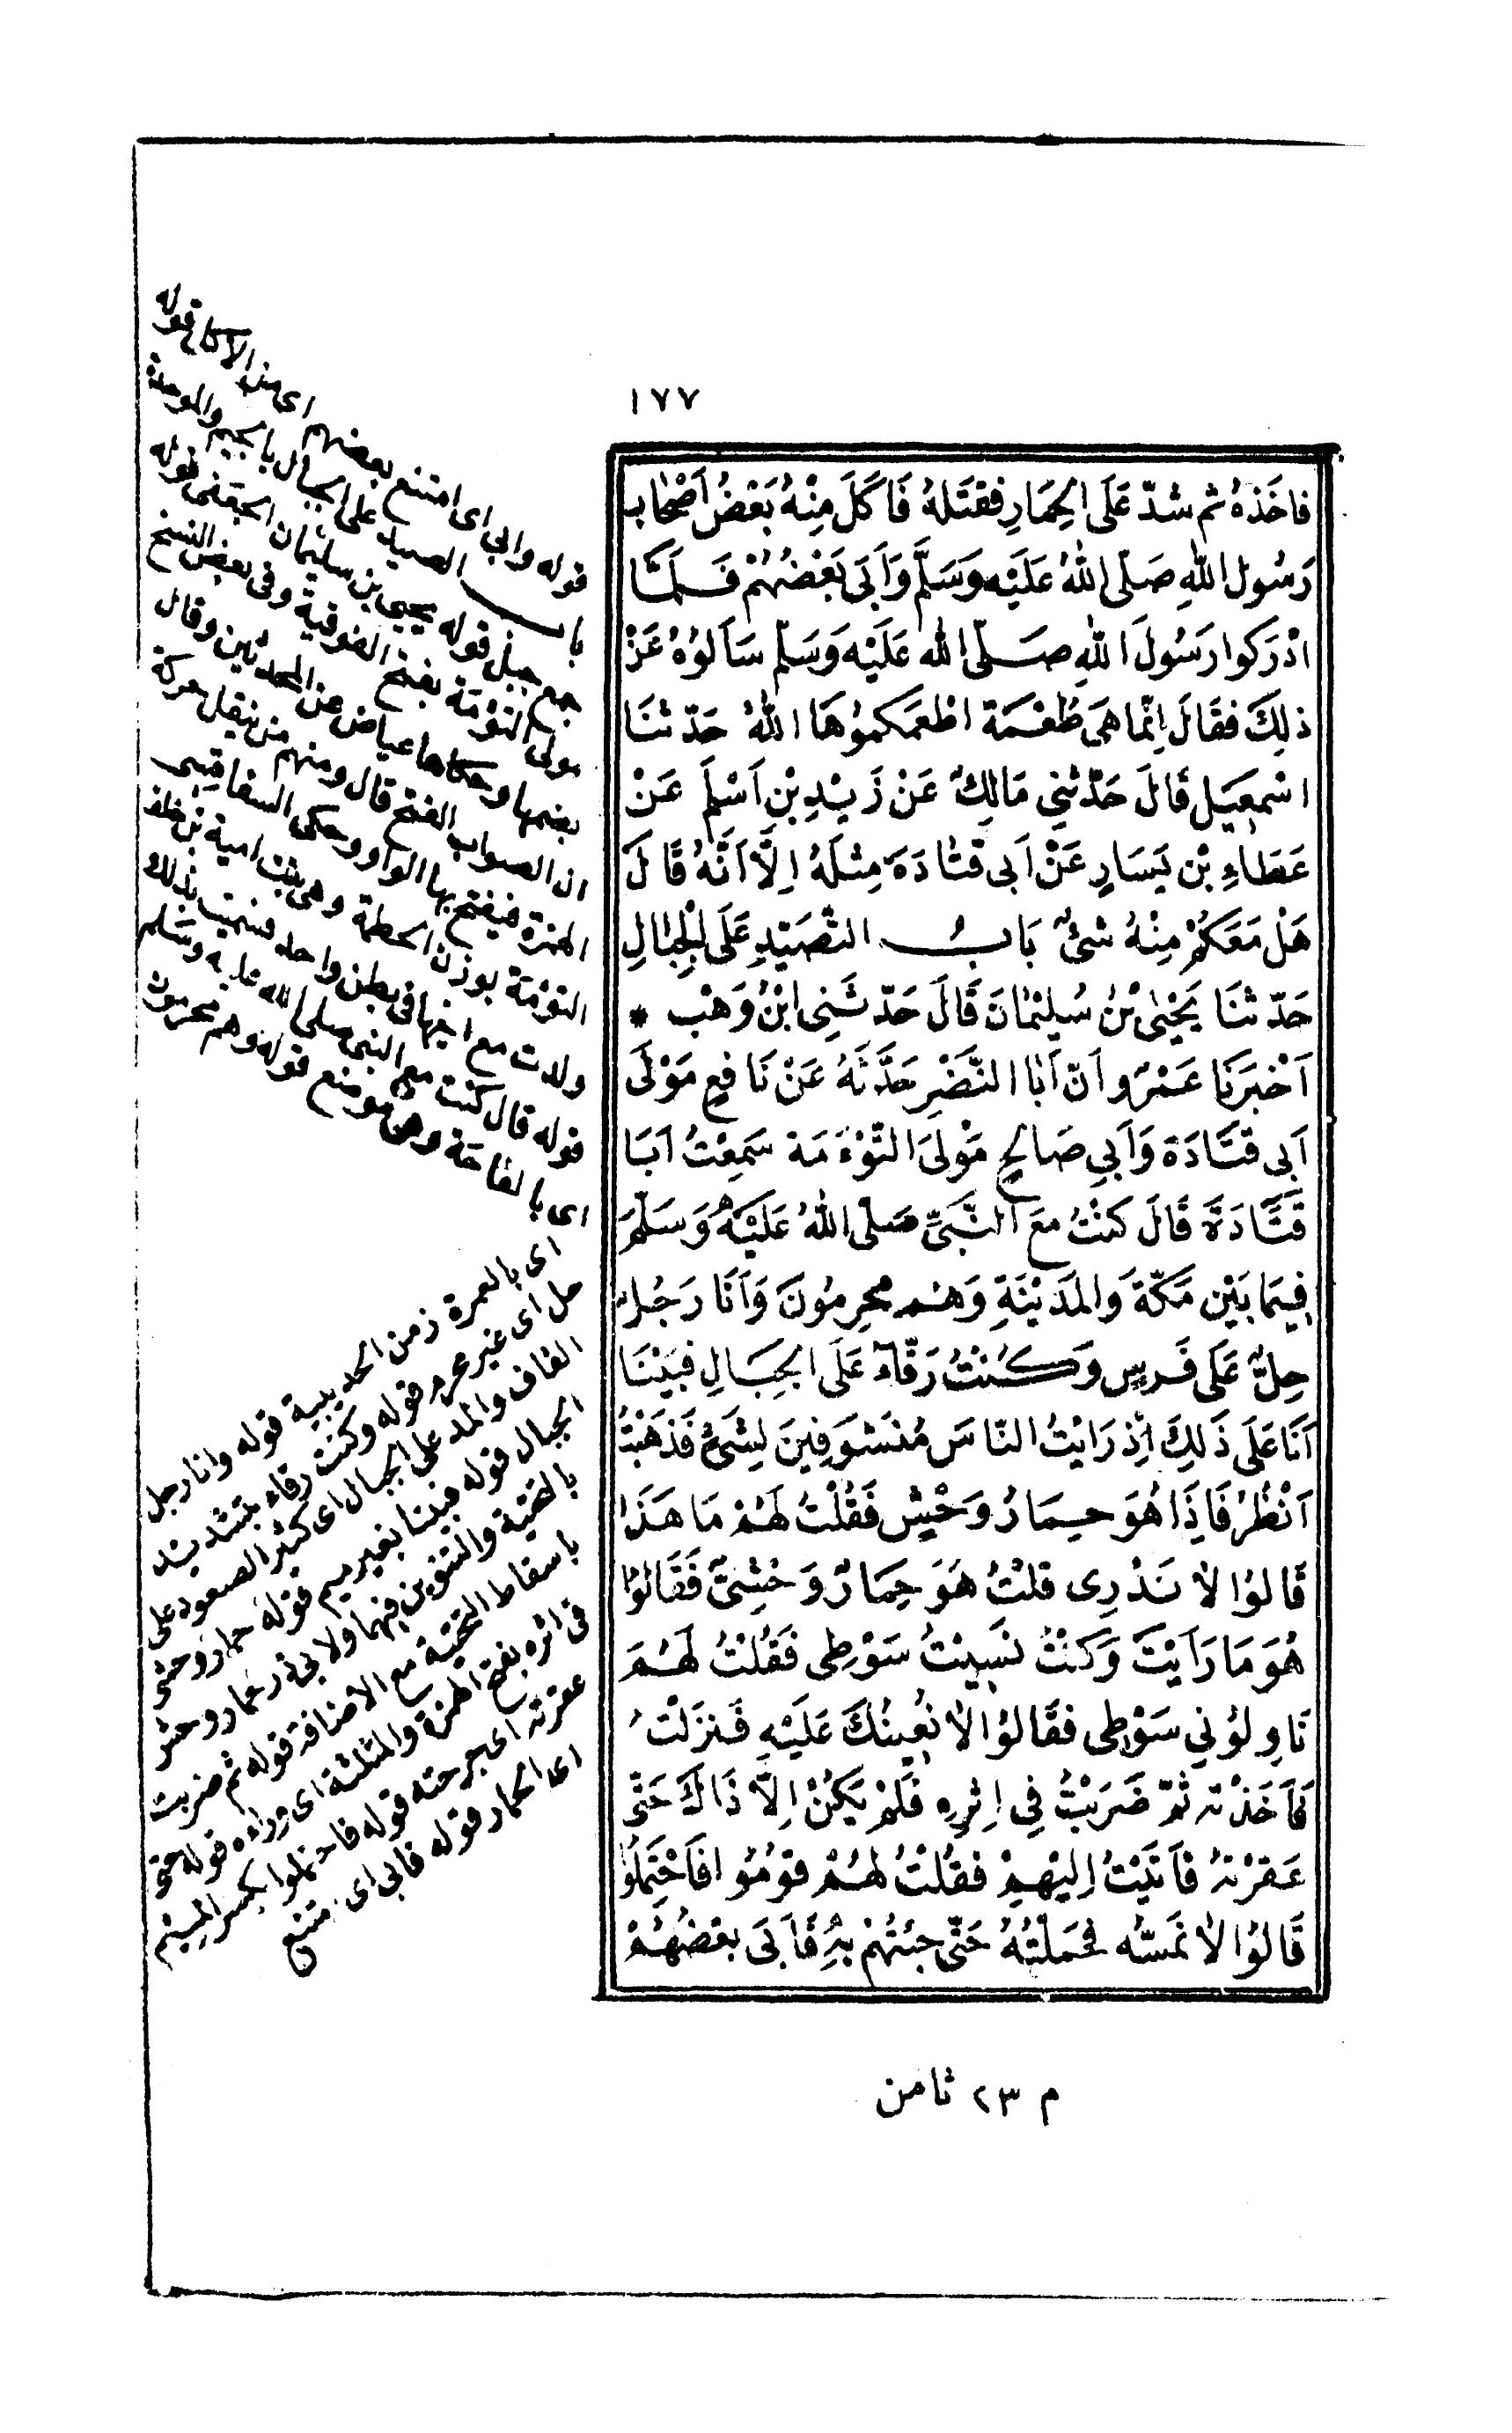 ١٧٧
فاخَذهُ ثم شدّ عَلَى الحِمَارِ فقتَلهُ فَاَكَلَ مِنْهُ بَعْضُ اَصْحَاب
رَسُولِ اللهِ صَلّى اللهُ عَلَيْه وَسَلَّمَ وَاَبَى بَعْضُهُمْ فَلَمَّا
ادْرَكوا رَسُولَ اللهِ صَلّى الله عَلَيْهِ وَسَلّم سَاَلوُهُ عَنْ
ذلِكَ فقَالَ اِنّما هىَ طُعْمَة اطْعَمَكموُهَا اللهُ حَدّثنَا
اسْمعِيَل قَالَ حَدّثني مَالِكٌ عَنْ زَيْدِ بْنِ اَسْلَم عَنْ
عَطَاءِ بْنِ يَسَارٍ عَنْ اَبى قتادَةَ مِثلَهُ اِلَّا اَنَّهُ قَالَ
هَلْ مَعَكمْ مِنْهُ شئٌ بَابُ التّصَيّدِ عَلَى الْجِبَالِ
حَدّثنَا يَحْيَى بْنُ سُلَيْمَانَ قَالَ حَدّثَنِى ابْنُ وَهْب *
اَخْبرَنَا عَمْرٌو اَنّ اَبَا النَّضْرِ حَدَّثَهُ عَنْ نَافِعٍ مَوْلَى
اَبى قتَادَة وَاَبِي صَالحٍ مَوْلىَ التّوْءَمَة سَمِعْتُ اَبَا
قَتَادَةَ قَالَ كنتُ معَ النَّبىّ صَلّى اللهُ عَلَيْهِ وَسَلّمَ
فِيمَا بَيْن مَكّةَ وَالمَدِيْنَةِ وَهُم محرِمُونَ وَاَنَا رَجُل
حِلٌّ عَلَى فَرسٍ وَكُنْتُ رَقّاءً عَلَى الجِبَالِ فبَيْنَا
اَنَا عَلَى ذَلِكَ اِذ رَايْتُ النّاسَ مُتَشَوّفِينَ لِشَئٍ فَذَهَبْتُ
اَنْظُرُ فَاِذَا هُوَ حِمَارُ وَحْشٍ فَقُلْتُ لَهُمْ مَا هَذَا
قَالوُا لاَ نَدْرِى قلتُ هُوَ حِمَارٌ وَحْشِىٌّ فَقَالوُا
هُوَ مَا رَاَيْتَ وَكنْتُ نَسِيْتُ سَوْطِى فَقُلْتُ لَهُمْ
نَاوِلوُني سَوْطِى فقَالوُا لاَ نُعِينُكَ عَلَيْهِ فَنزَلْتُ
فَاَخَذْته ثمّ ضَرَبْتُ فِي اِثرِهِ فَلَمْ يَكُنْ اِلَّا ذَاكَ حَتّى
عَقرْتهُ فَاَتَيْتُ اِليْهِمْ فقُلْتُ لهُمْ قوُمُوا فَاحْتَمِلُوا
قَالوُا لاَ نَمَسّه فحَمَلْتُهُ حَتّى جِئتُهُم بِهِ فَاَبَى بعْضُهُمْ
قوله وابى اى امتنع بعضهم اى من الاكل قوله
باب الصيد على الجبال بالجيم والموحدة
جمع جبل قوله يحيى بن سليمان الجعفى قوله
مولى التؤمة بفتح الفوقية وفى بعض النسخ
بضمها وحكاها عياض عن المحدثين وقال
ان الصواب الفتح قال ومنهم من ينقل حركة
الهمزة فيفتح بها الواو وحكى السفاقسى
التؤمة بوزن الحطمة وهى بنت امية بن خلف
ولدت مع اختها فى بطن واحد فسميت بذلك
قوله قال كنت مع النبى صلى الله عليه وسلم
اى بالقاحة وهى موضع قوله وهم محرمون
اى بالعمرة زمن الحديبية قوله وانا رجل
حل اى غير محرم قوله وكنت رقاء بتشديد
القاف والمد على الجبال اى كثير الصعود على
الجبال قوله فبينا بغير ميم قوله حمار وحشى
بالتحتية والتنوين فيهما ولابى ذر حمار وحش
باسقاط التحتية مع الاضافة قوله ثم ضربت
فى اثره بفتح الهمزة والمثلثة اى وراءه قوله حتى
عقرته اى جرحته قوله فاحتملوا بكسر الميم
اى الحمار قوله فابى اى امتنع
م ٢٣ ثامن